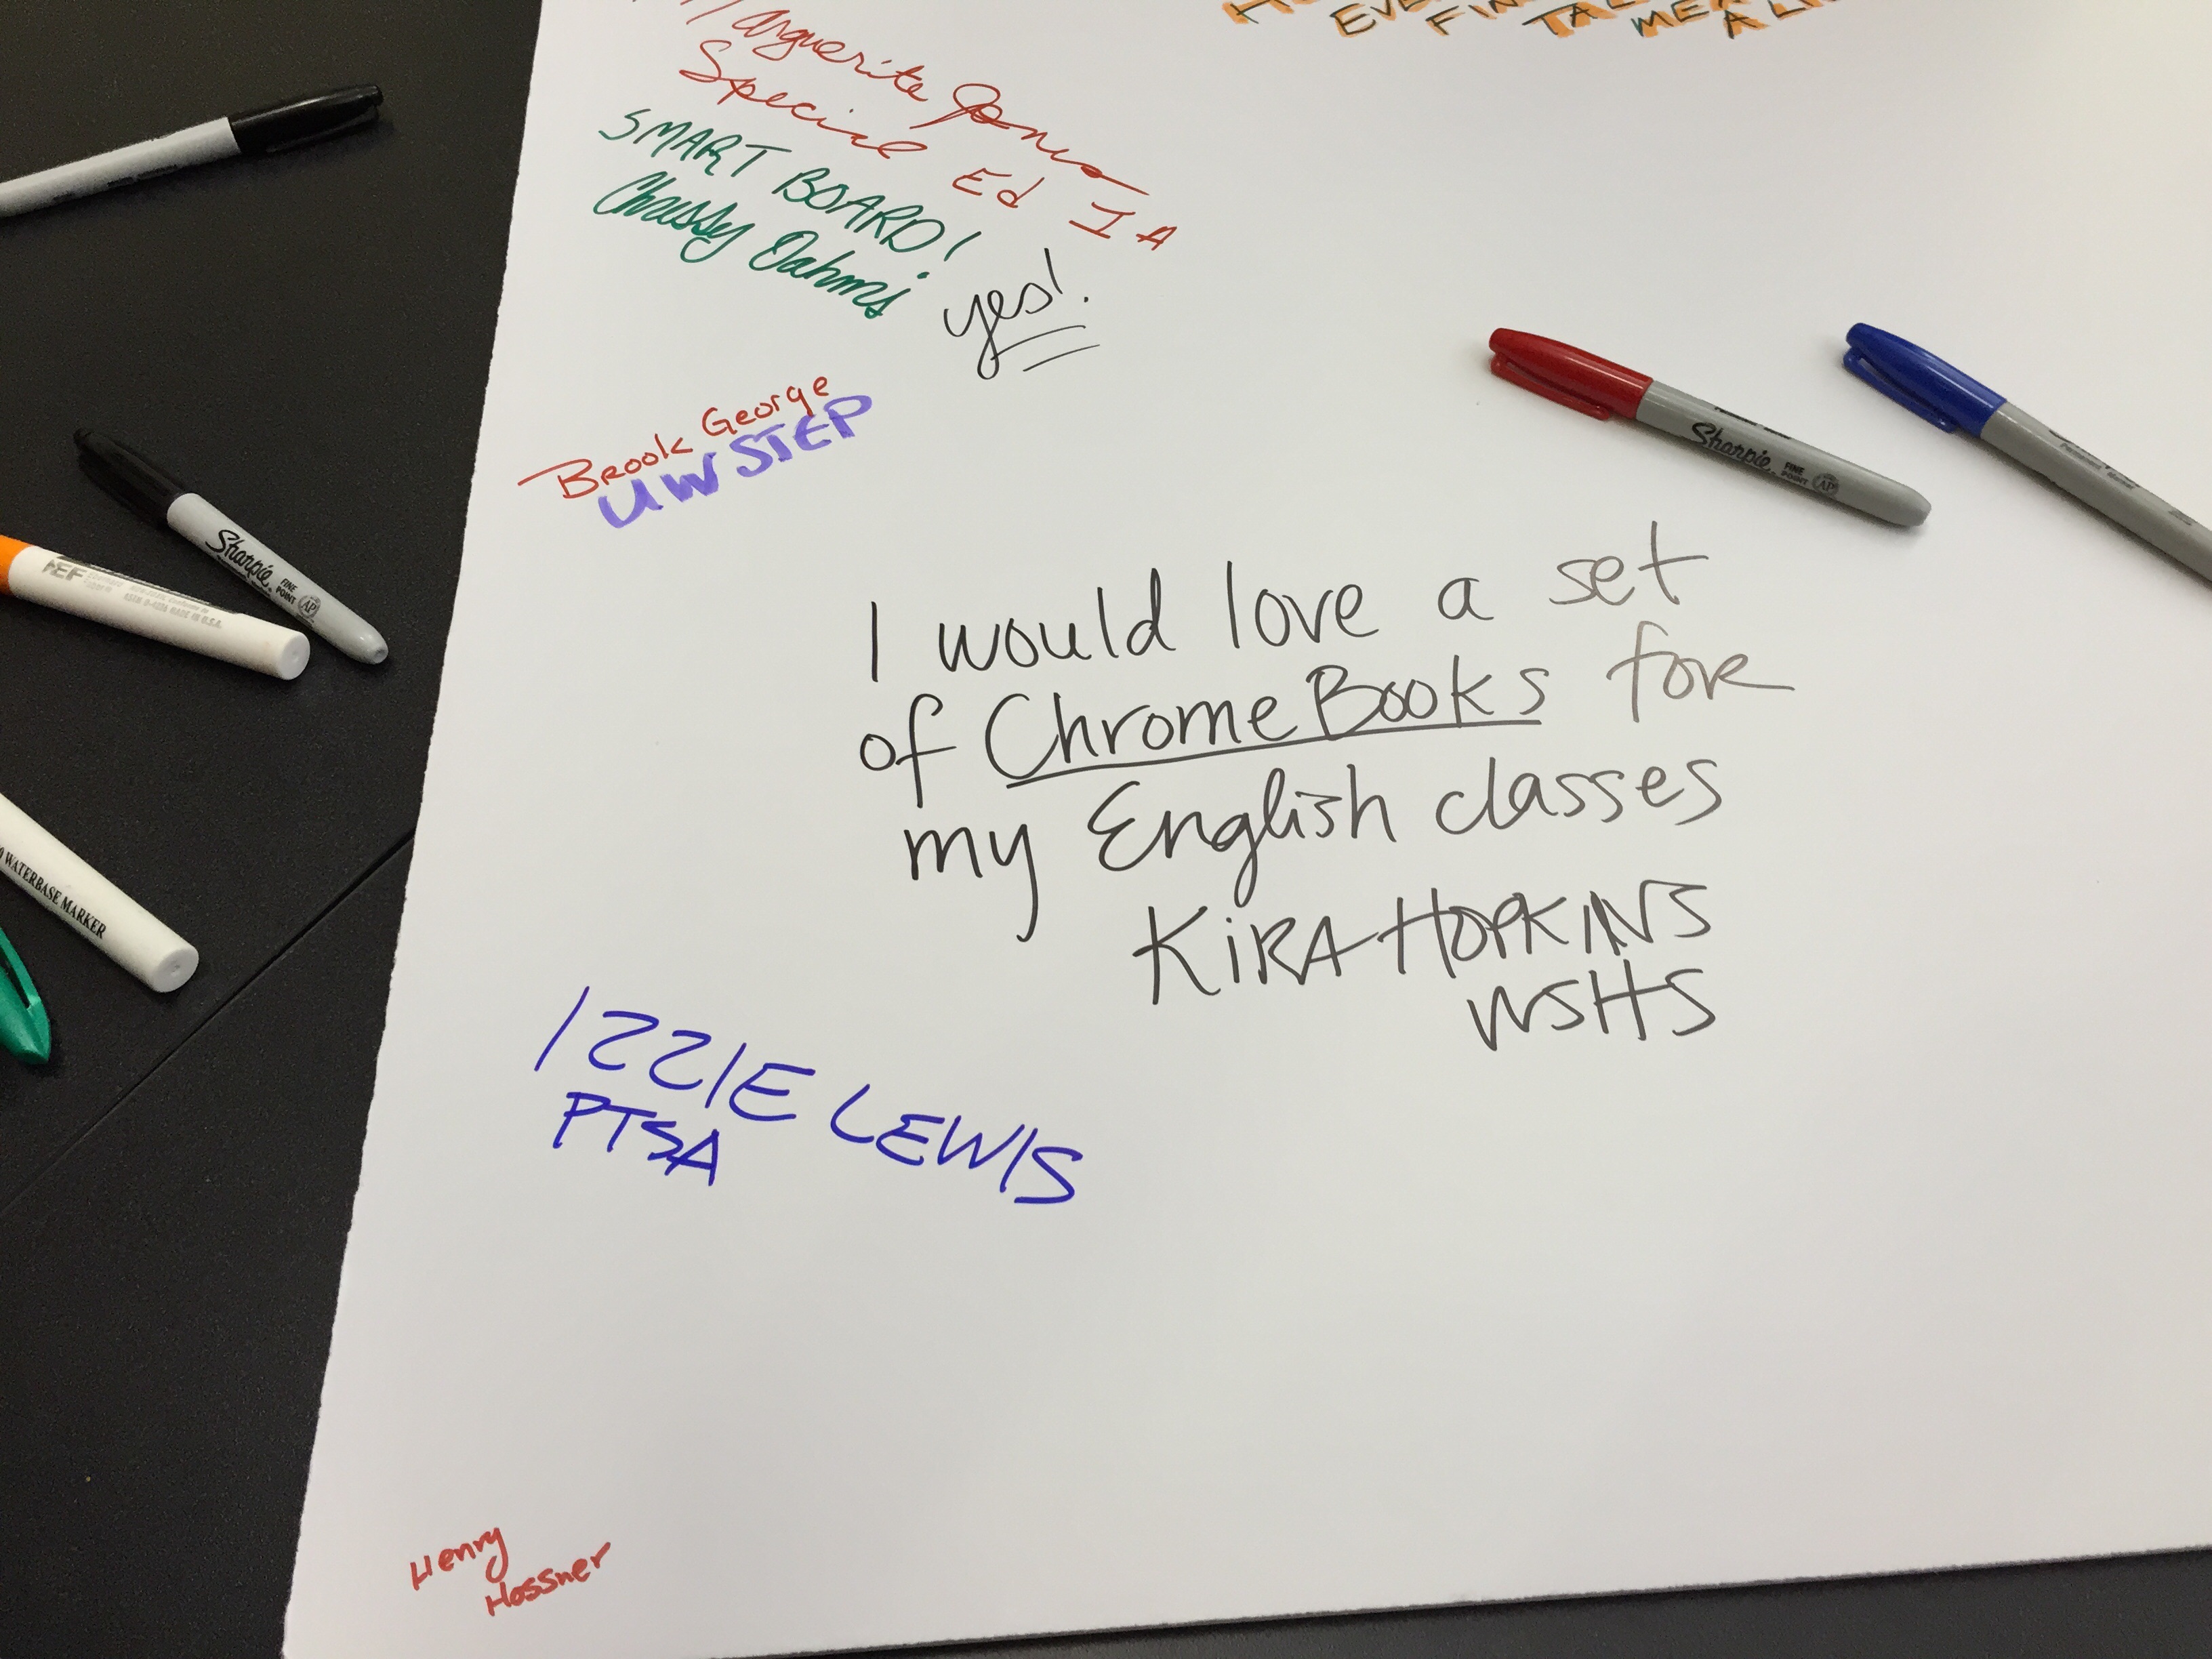 Marguerite Jones
Special Ed IA
SMART BOARD!
Chrissy Dahms
yes!
Brook George
UW STEP
I would love a set
of ChromeBooks for
my English classes
KiRA HOPKINS
WSHS
IZZIE LEWIS
PTSA
Henry
Hossner
Sharpie
FINE
POINT
AP
Sharpie
FINE
POINT
AP
WATERBASE MARKER